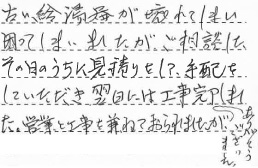 古い給湯器が壊れてしまい
困ってしまいましたが、ご相談した
その日のうちに見積りをして、手配を
していただき翌日には工事完了しまし
た。営業と工事を兼ねておられましたが、
ありがとう
ございい
ました。